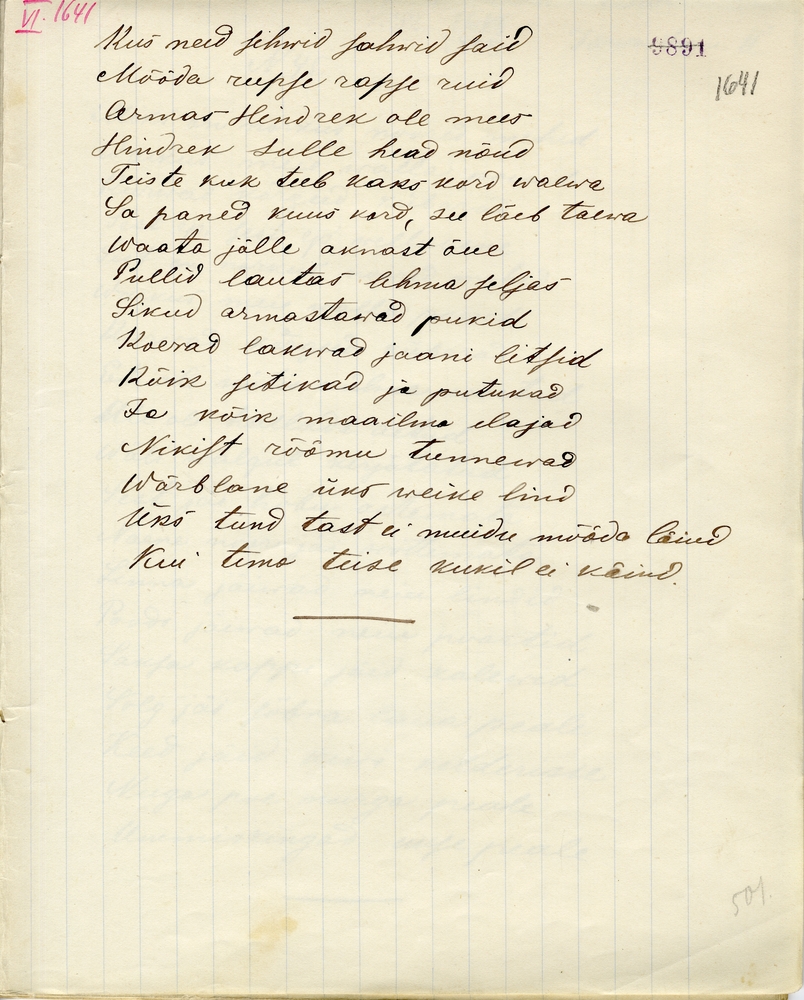 VI. 1641
9891
1641
Kus need sihwid sahwid said
Mööda rupse rapse ruid
Armas Hindrek ole mees
Hindrek sulle head nõud
Teiste kuk teeb kaks kord waewa
Sa paned kuus kord, see läeb taewa
Waata jälle aknast õue
Pullid lautas lehma seljas
Sikud armastawad pukid
Koerad lakwad jaani litsid
Kõik sitikad ja putukad
Ja kõik maailma elajad
Nikist rõõmu tunnewad
Wärblane üks weike lind
Üks tund tast ei muidu mööda läind
Kui tema teise kukil ei käind.
501.